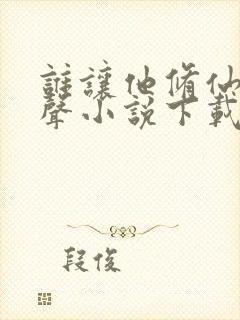 誰讓他脩仙
聲小說下載
段俊